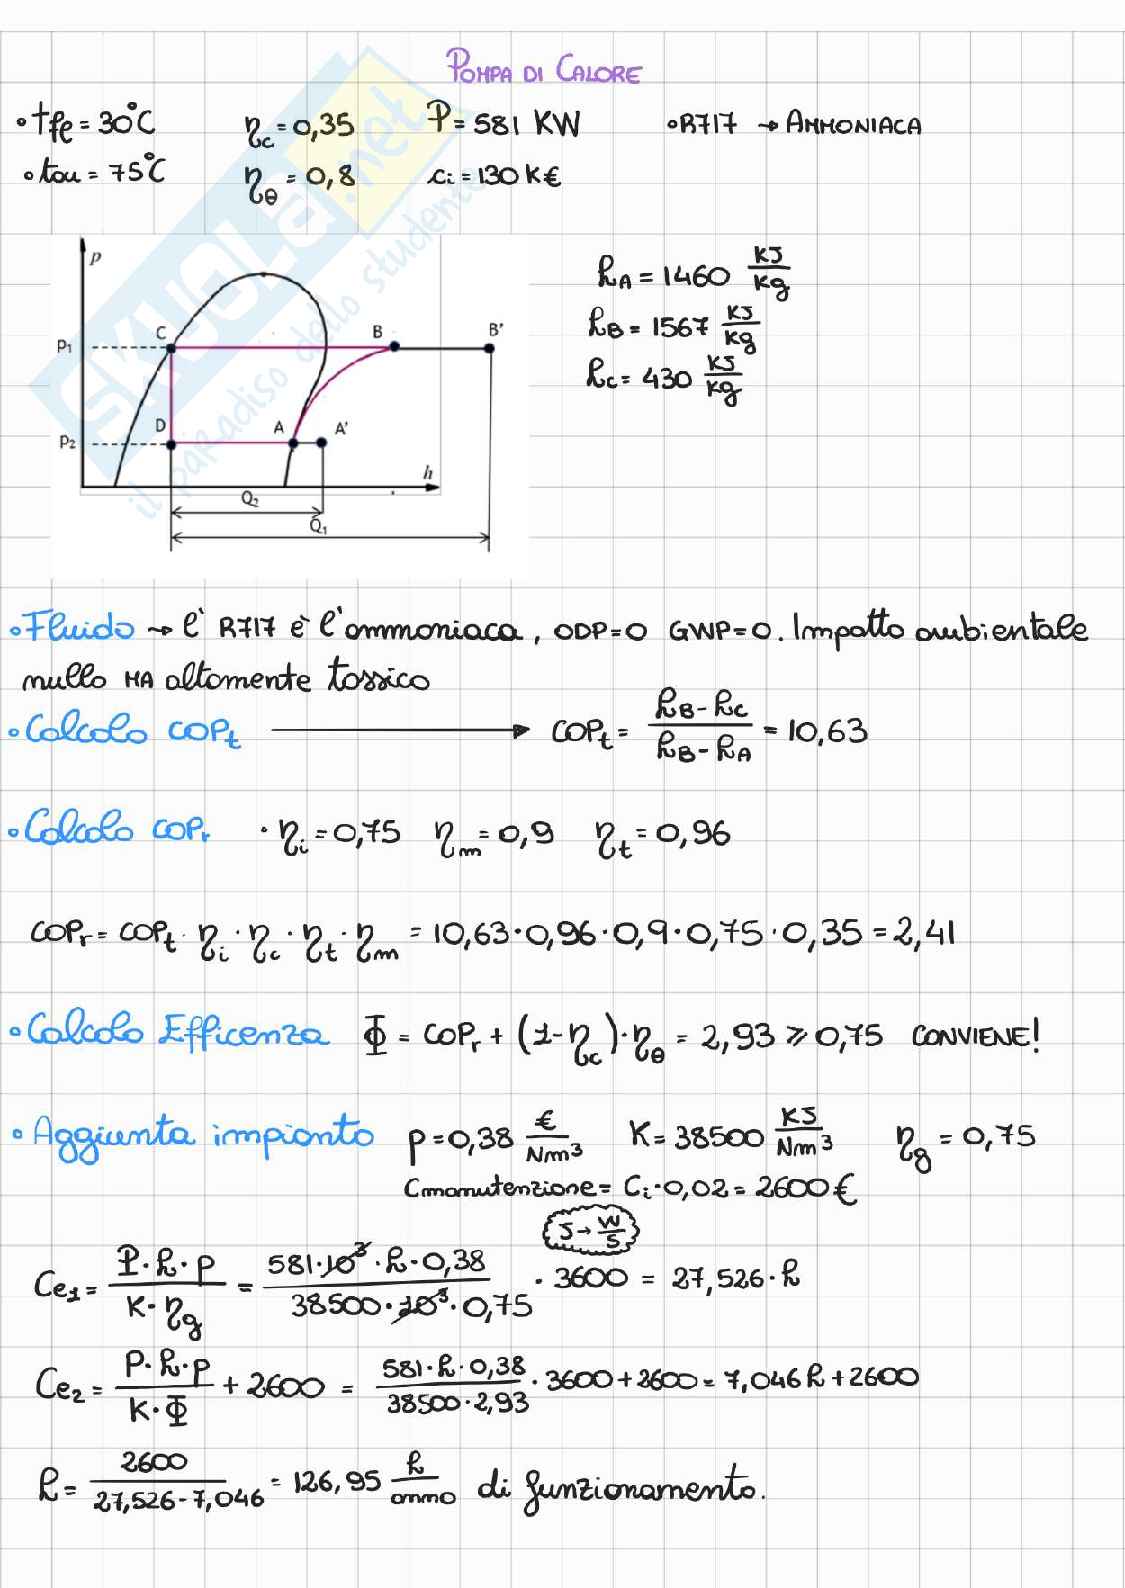 POMPA DI CALORE
• tfe = 30°C   ηc = 0,35   P = 581 KW   • R717 → AMMONIACA
• tou = 75°C   ηθ = 0,8   ci = 130 K€
SKUOLA.net
il paradiso dello studente
p
hA = 1460 KJ/Kg
hB = 1567 KJ/Kg
hC = 430 KJ/Kg
p1 C B B'
p2 D A A'
h
Q2
Q1
• Fluido → l' R717 è l'ammoniaca, ODP=0 GWP=0. Impatto ambientale
nullo MA altamente tossico
• Calcolo COPt → COPt = (hB - hC)/(hB - hA) = 10,63
• Calcolo COPr   · ηi = 0,75   ηm = 0,9   ηt = 0,96
COPr = COPt · ηi · ηc · ηt · ηm = 10,63 · 0,96 · 0,9 · 0,75 · 0,35 = 2,41
• Calcolo Efficenza   Φ = COPr + (1-ηc) · ηθ = 2,93 ≥ 0,75   CONVIENE!
• Aggiunta impianto   p = 0,38 €/Nm³   K = 38500 KJ/Nm³   ηg = 0,75
Cmanutenzione = Ci · 0,02 = 2600 €
J → W/s
Ce1 = (P · h · p)/(K · ηg) = (581 · 10³ · h · 0,38)/(38500 · 10³ · 0,75) · 3600 = 27,526 · h
Ce2 = (P · h · p)/(K · Φ) + 2600 = (581 · h · 0,38)/(38500 · 2,93) · 3600 + 2600 = 7,046 h + 2600
h = 2600/(27,526 - 7,046) = 126,95 h/anno di funzionamento.